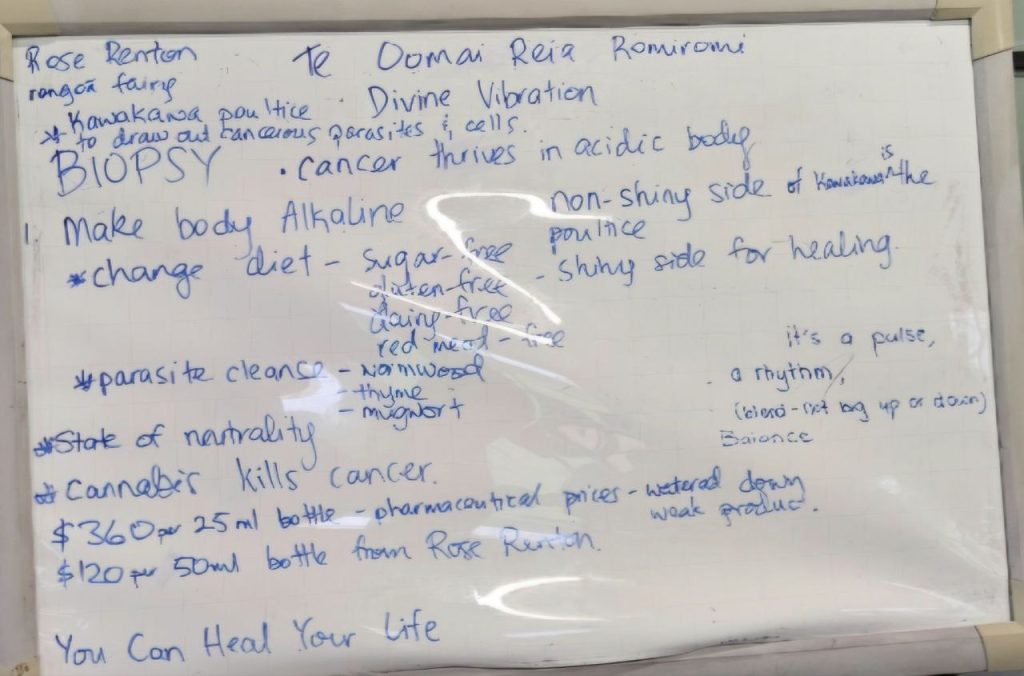 Rose Renton
Te Oomai Reia Romiromi
rongoā fairy
Divine Vibration
* Kawakawa poultice
to draw out cancerous parasites & cells.
BIOPSY
• cancer thrives in acidic body
1 Make body Alkaline
non-shiny side of Kawakawa is the
poultice
- shiny side for healing.
* change diet - sugar-free
gluten-free
dairy-free
red meat-free
* parasite cleanse - wormwood
- thyme
- mugwort
it's a pulse,
a rhythm,
(blend - not big up or down)
Balance
* State of neutrality
* Cannabis kills cancer.
$360 per 25ml bottle - pharmaceutical prices - watered down
weak product.
$120 per 50ml bottle from Rose Renton.
You Can Heal Your Life